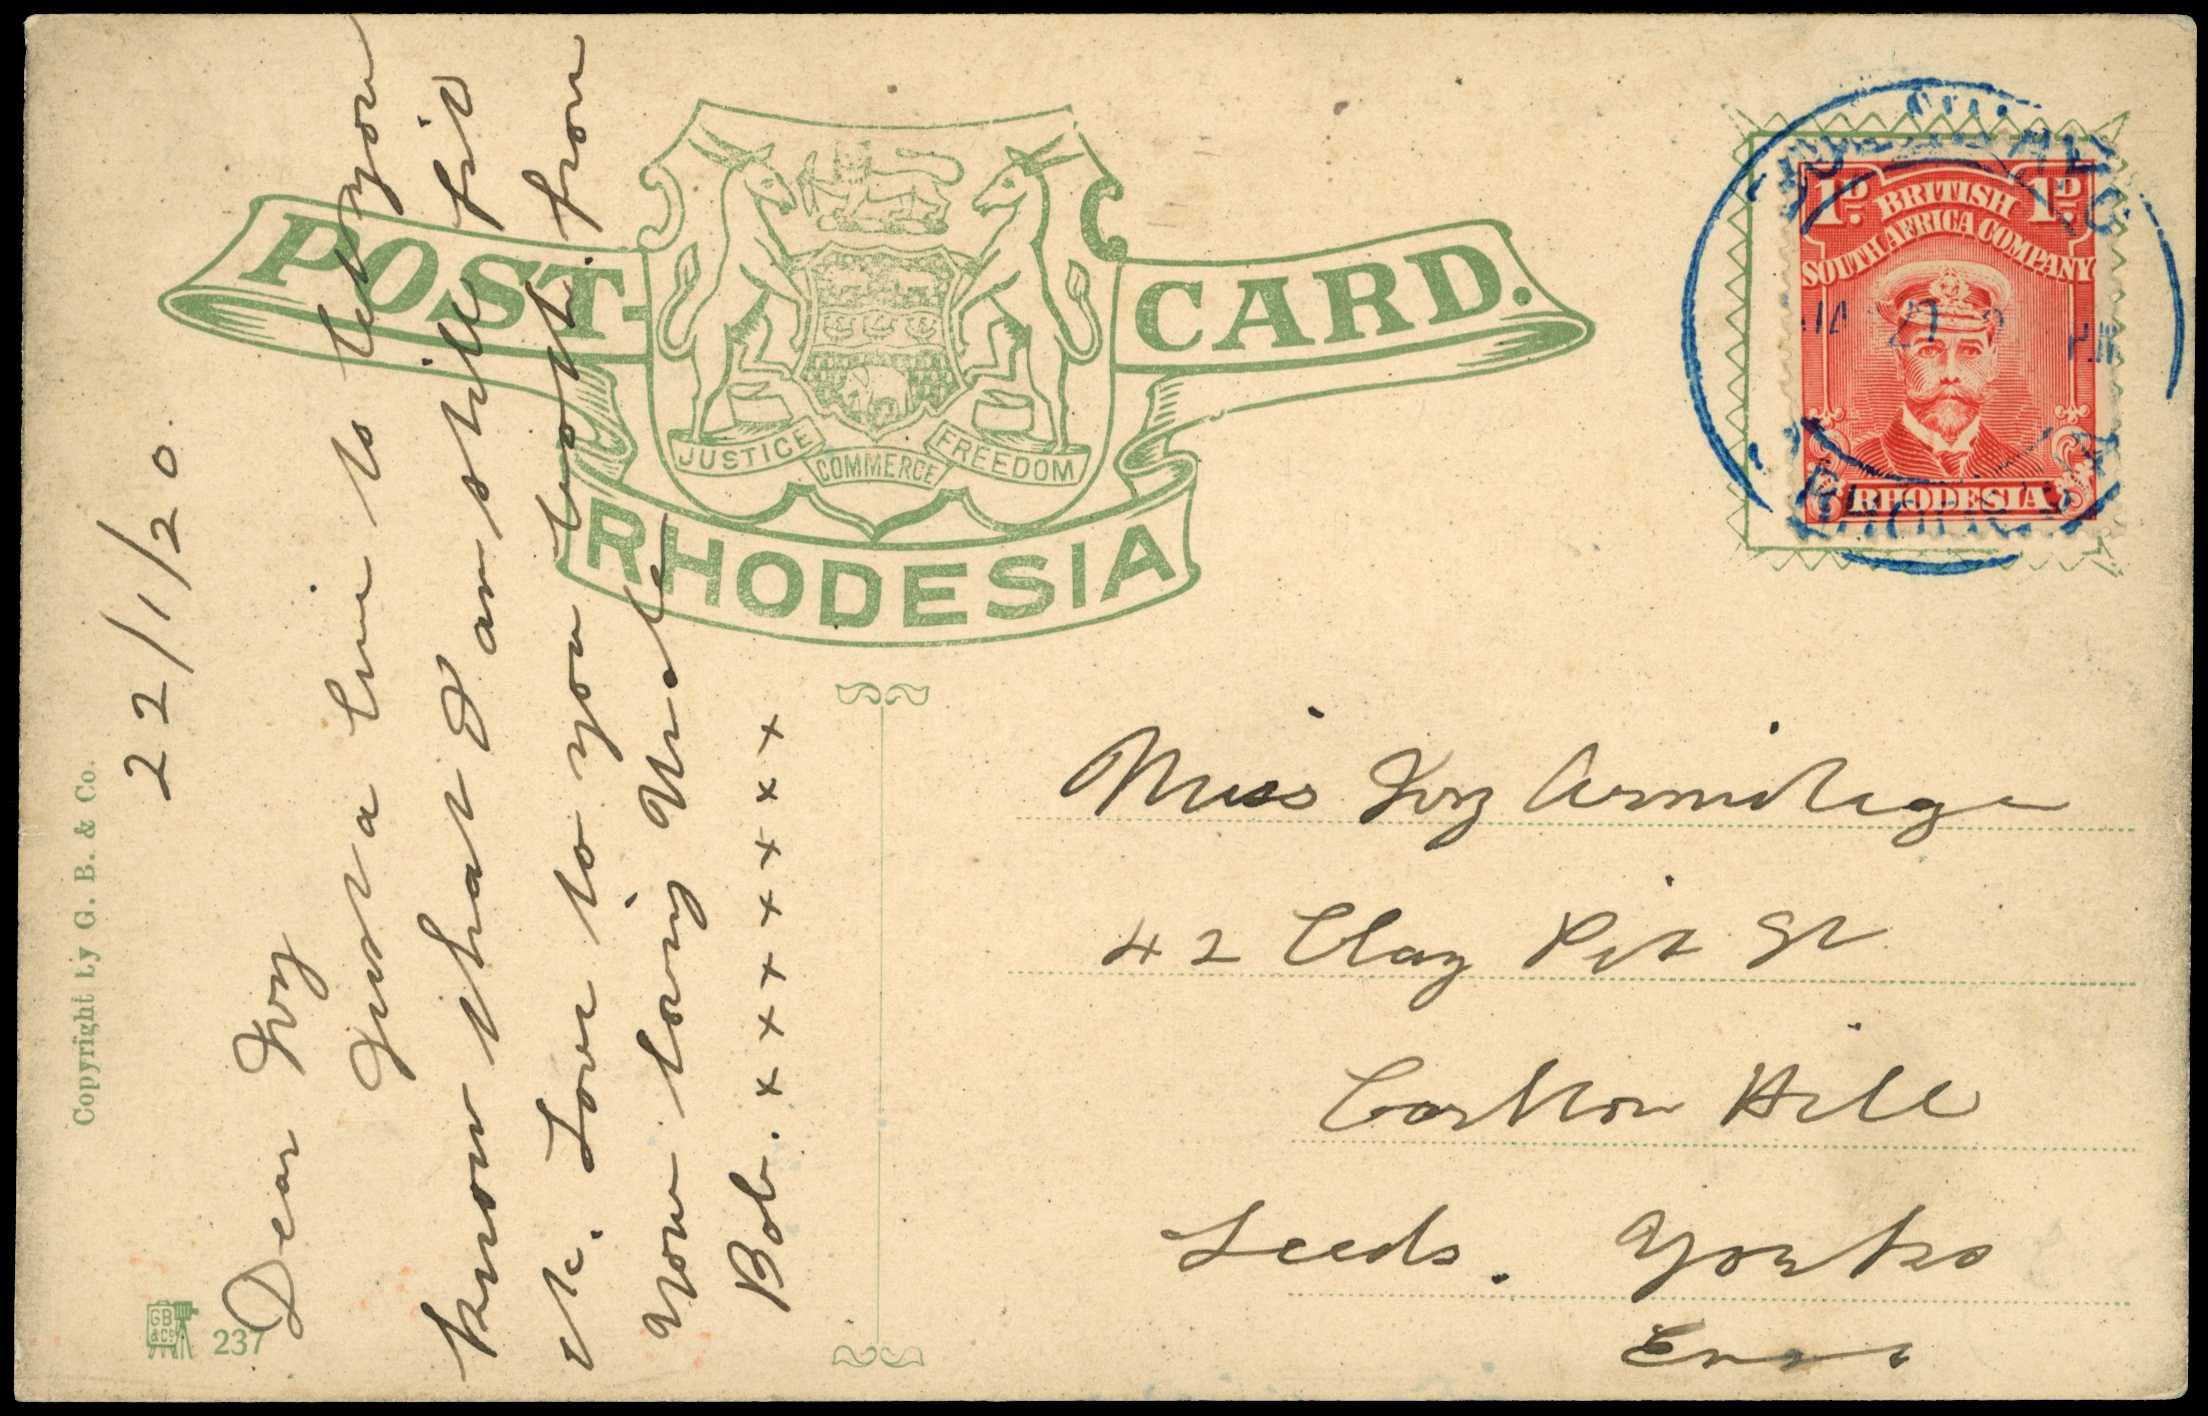 POST CARD.
JUSTICE
COMMERCE
FREEDOM
RHODESIA
1D. 1D.
BRITISH
SOUTH AFRICA COMPANY
RHODESIA
Copyright by G. B. & Co.
GB
& Co
237
22/1/20.
Dear Ivy
Just a line to let you
know that I am still fit
etc. Love to you both from
Your loving Uncle
Bob. x x x x x x x
Miss Ivy Armitage
42 Clay Pit St
Carlton Hill
Leeds. Yorks